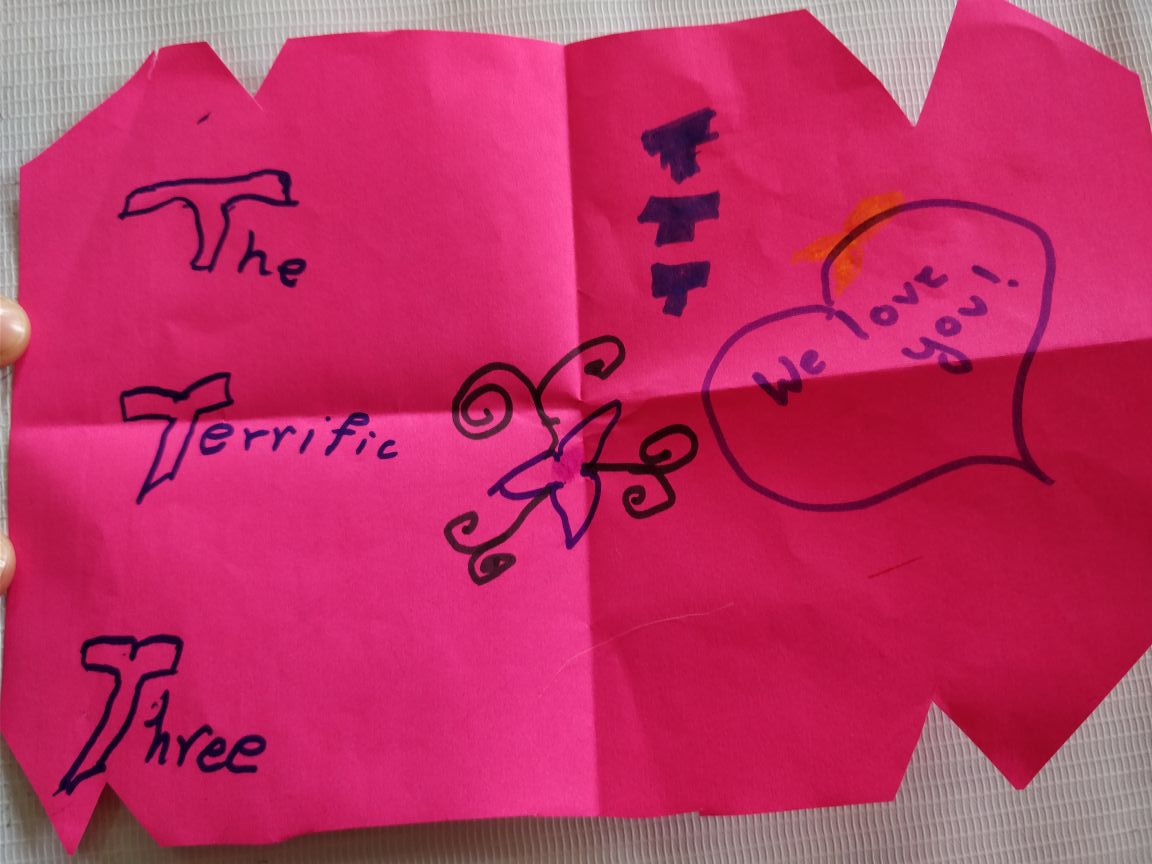 The
Terrific
Three
T
T
T
We love
you!